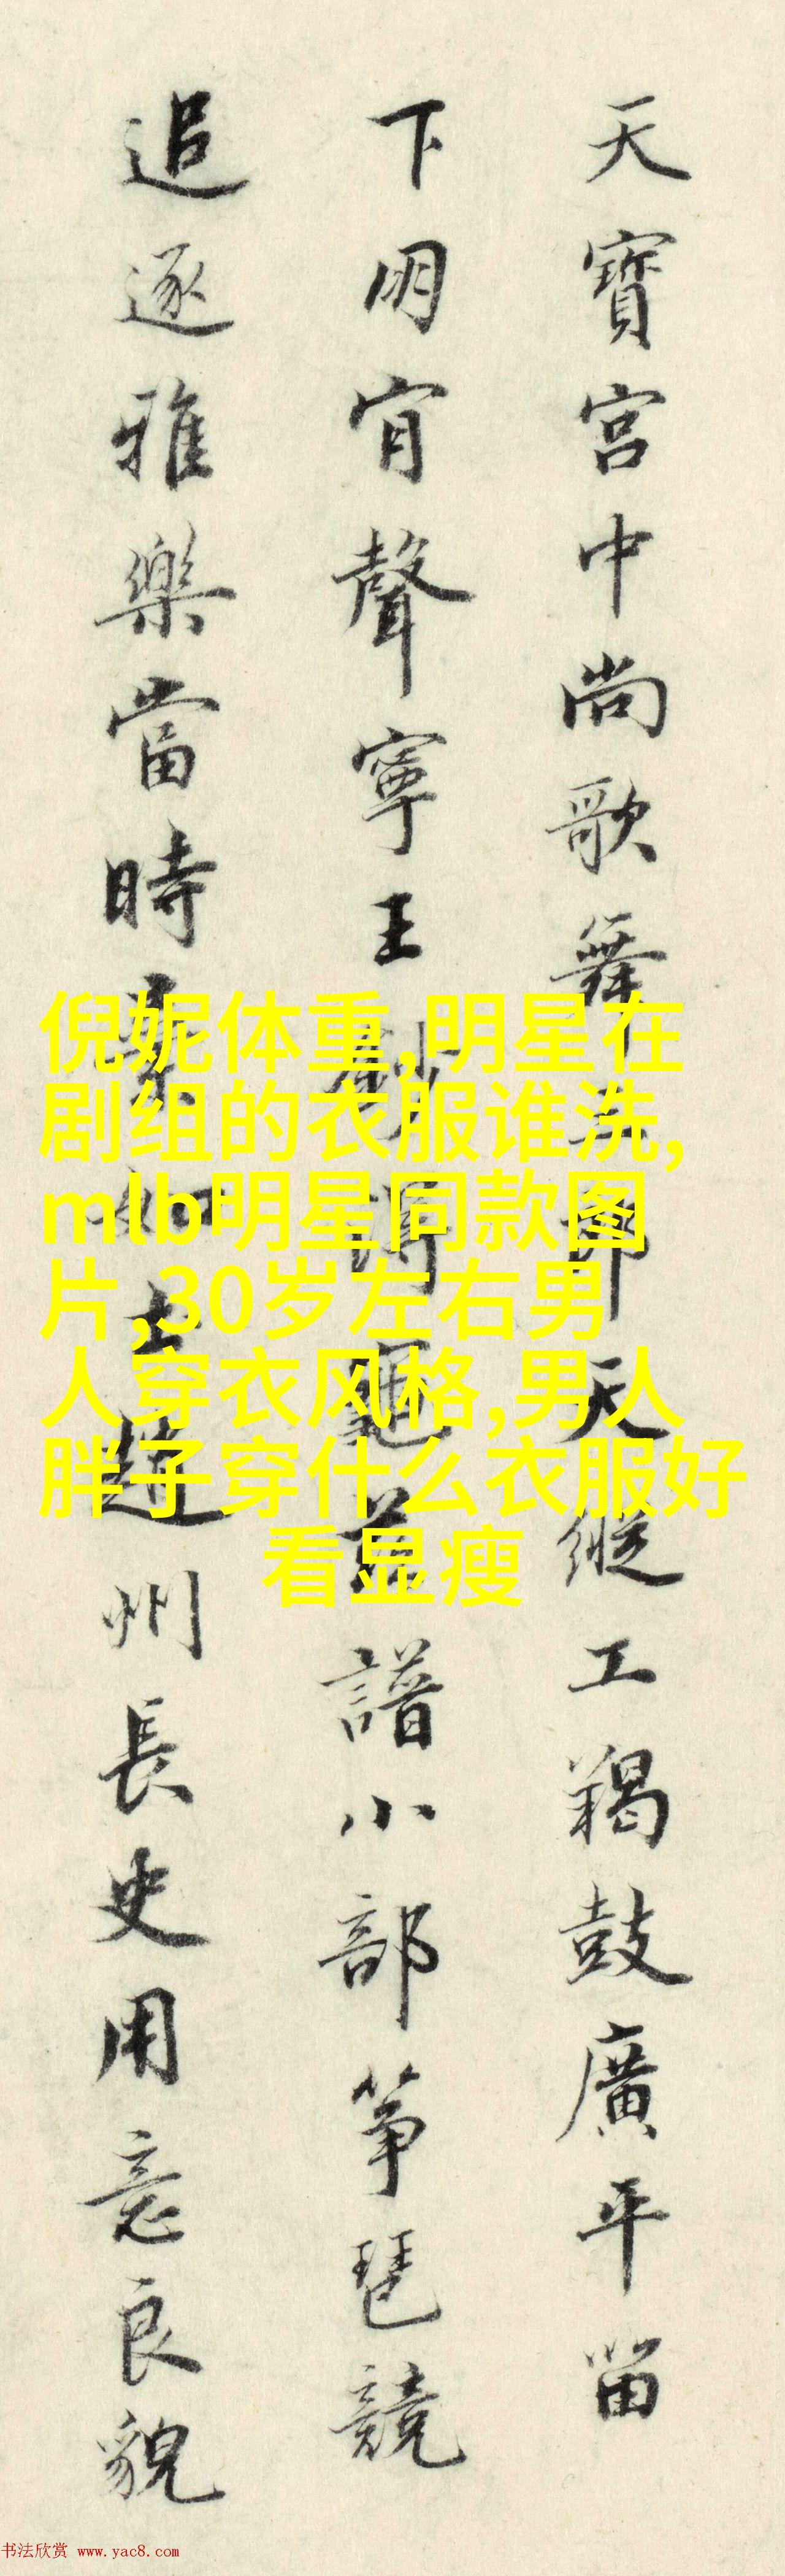 天寶宮中尚歌舞郎天縱工羯鼓廣平留
下朋肯聲寧王得龜茲譜小部箏琶競
追逐雅樂當時如士趙州長史用意良貌
倪妮体重,明星在
剧组的衣服谁洗,
mlb明星同款图
片,30岁左右男
人穿衣风格,男人
胖子穿什么衣服好
看显瘦
书法欣赏 www.yac8.com